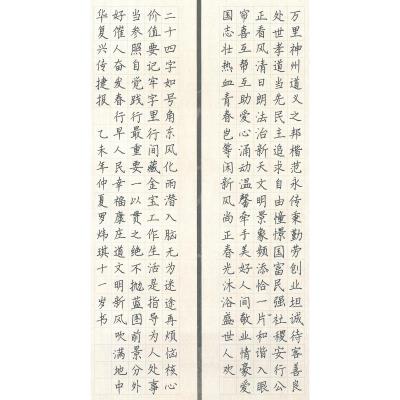 万里神州道义之邦楷范永传秉勤劳创业坦诚待客善良
处世孝道当先民主追求自由憧憬国富民强社稷安行公
正看风清日朗法治新天文明景象频添恰一片和谐入眼
帘喜互帮互助爱心涌动温馨牵手美好人间敬业情豪爱
国志壮热血青春岂等闲新风尚正春光沐浴盛世人吹
二十四字如号角东风化雨潜入脑无为迷途再烦恼核心
价值要记牢字里行间藏金宝工作生活是指导为人处事
当参照自觉践行最重要一以贯之绝不抛蓝图前景分外
好催人奋发春行早人民幸福康庄道文明新风吹满地中
华复兴传捷报 乙未年仲夏罗炜琪十一岁书